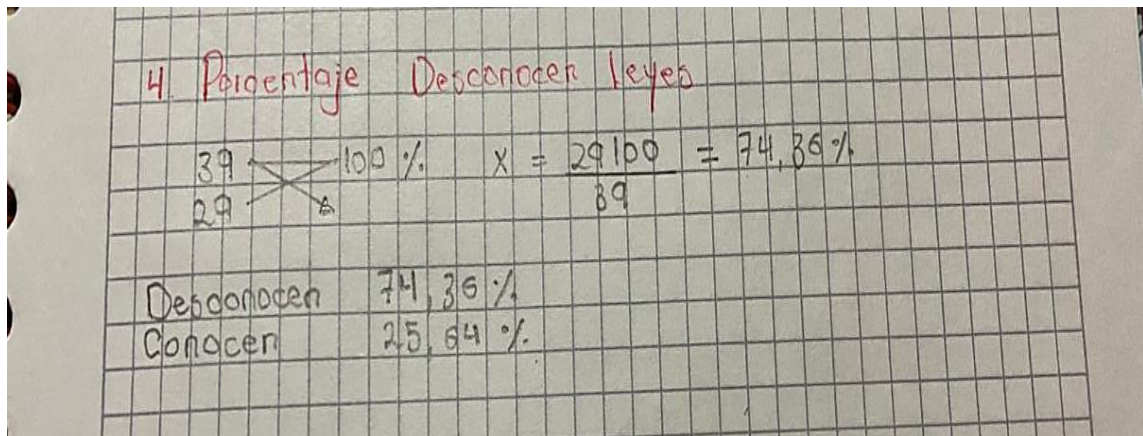 4. Porcentaje Desconocen leyes
39 100 % x = 29 100 / 39 = 74,36 %
29
Desconocen 74,36 %
Conocen 25,64 %